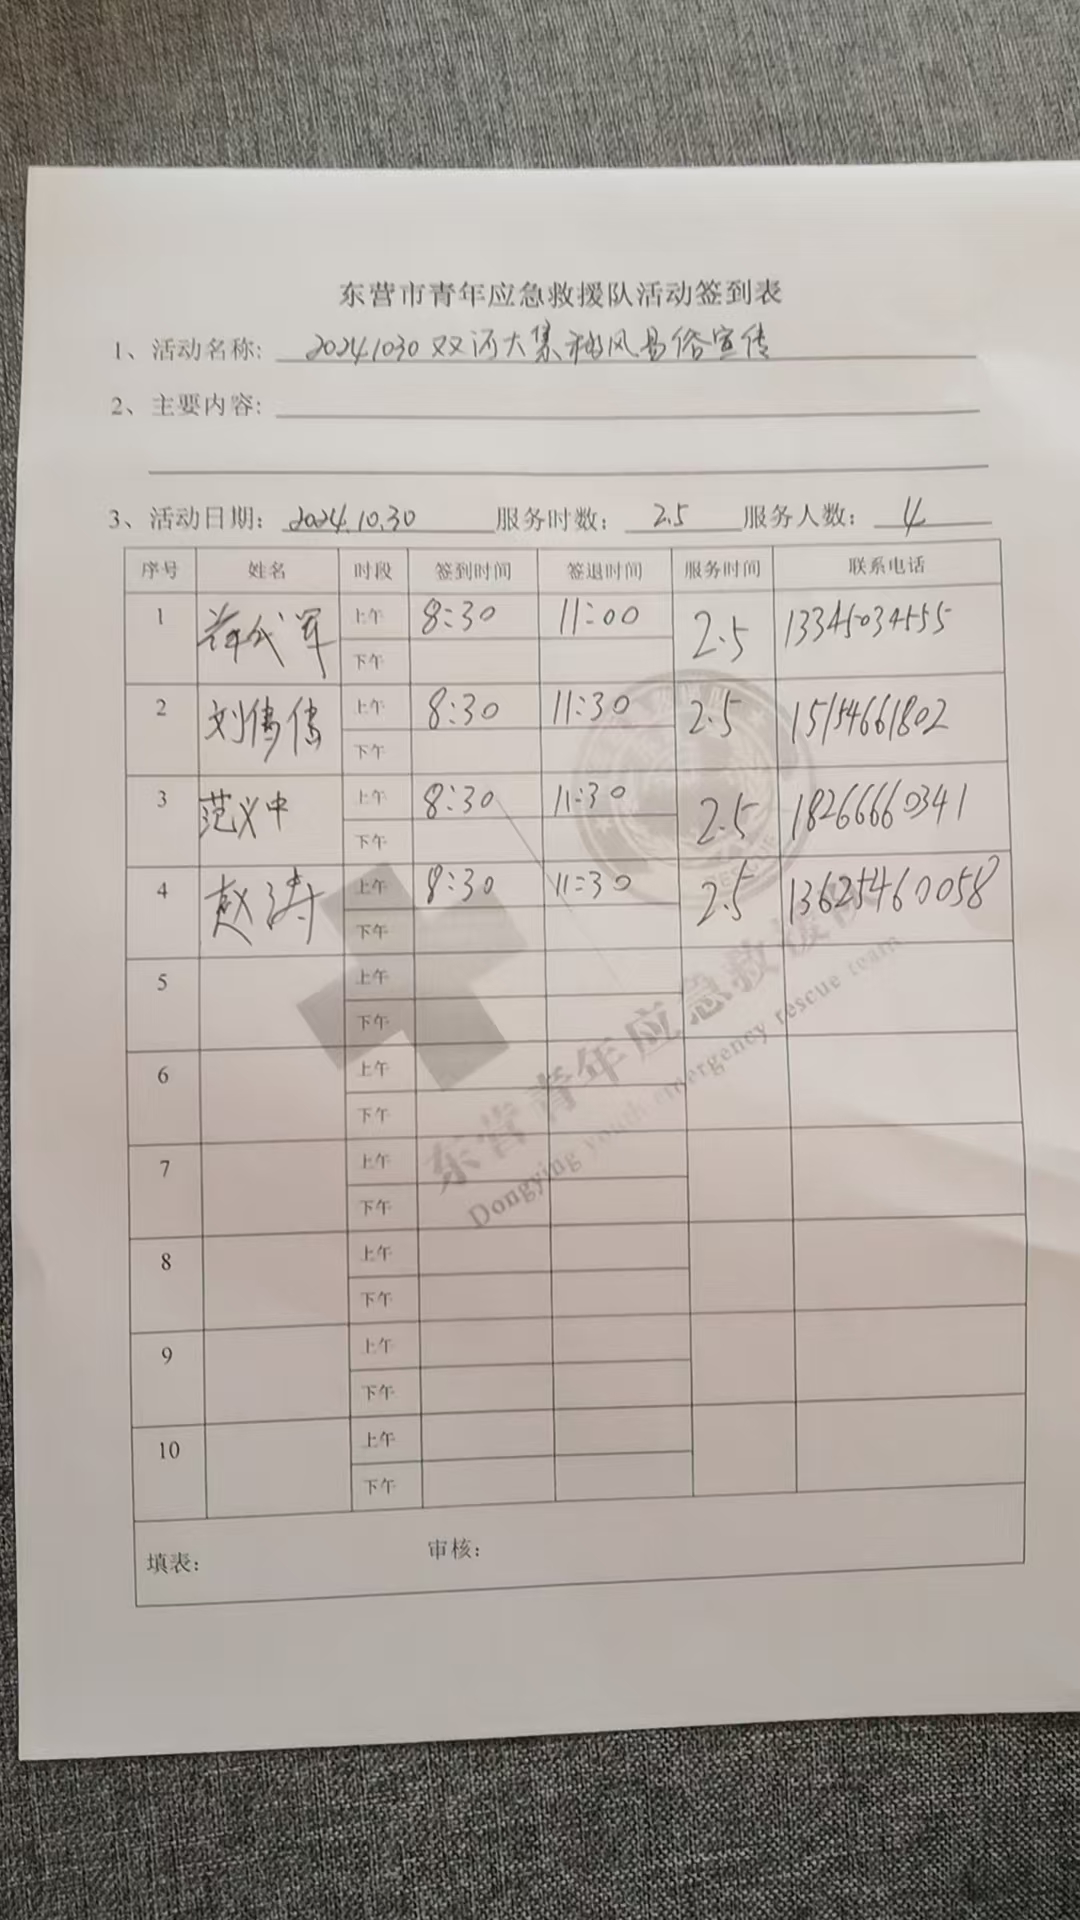 东营市青年应急救援队活动签到表
1、活动名称: 20241030双河大集移风易俗宣传
2、主要内容:
3、活动日期: 2024.10.30 服务时数: 2.5 服务人数: 4
序号 姓名 时段 签到时间 签退时间 服务时间 联系电话
1 上午 8:30 11:00 2.5 13345034555
下午
2 刘倩倩 上午 8:30 11:30 2.5 15154661802
下午
3 范义中 上午 8:30 11:30 2.5 18266660341
下午
4 赵涛 上午 8:30 11:30 2.5 13625460058
下午
5 上午
下午
6 上午
下午
7 上午
下午
8 上午
下午
9 上午
下午
10 上午
下午
填表: 审核:
东营青年应急救援队
Dongying youth emergency rescue team